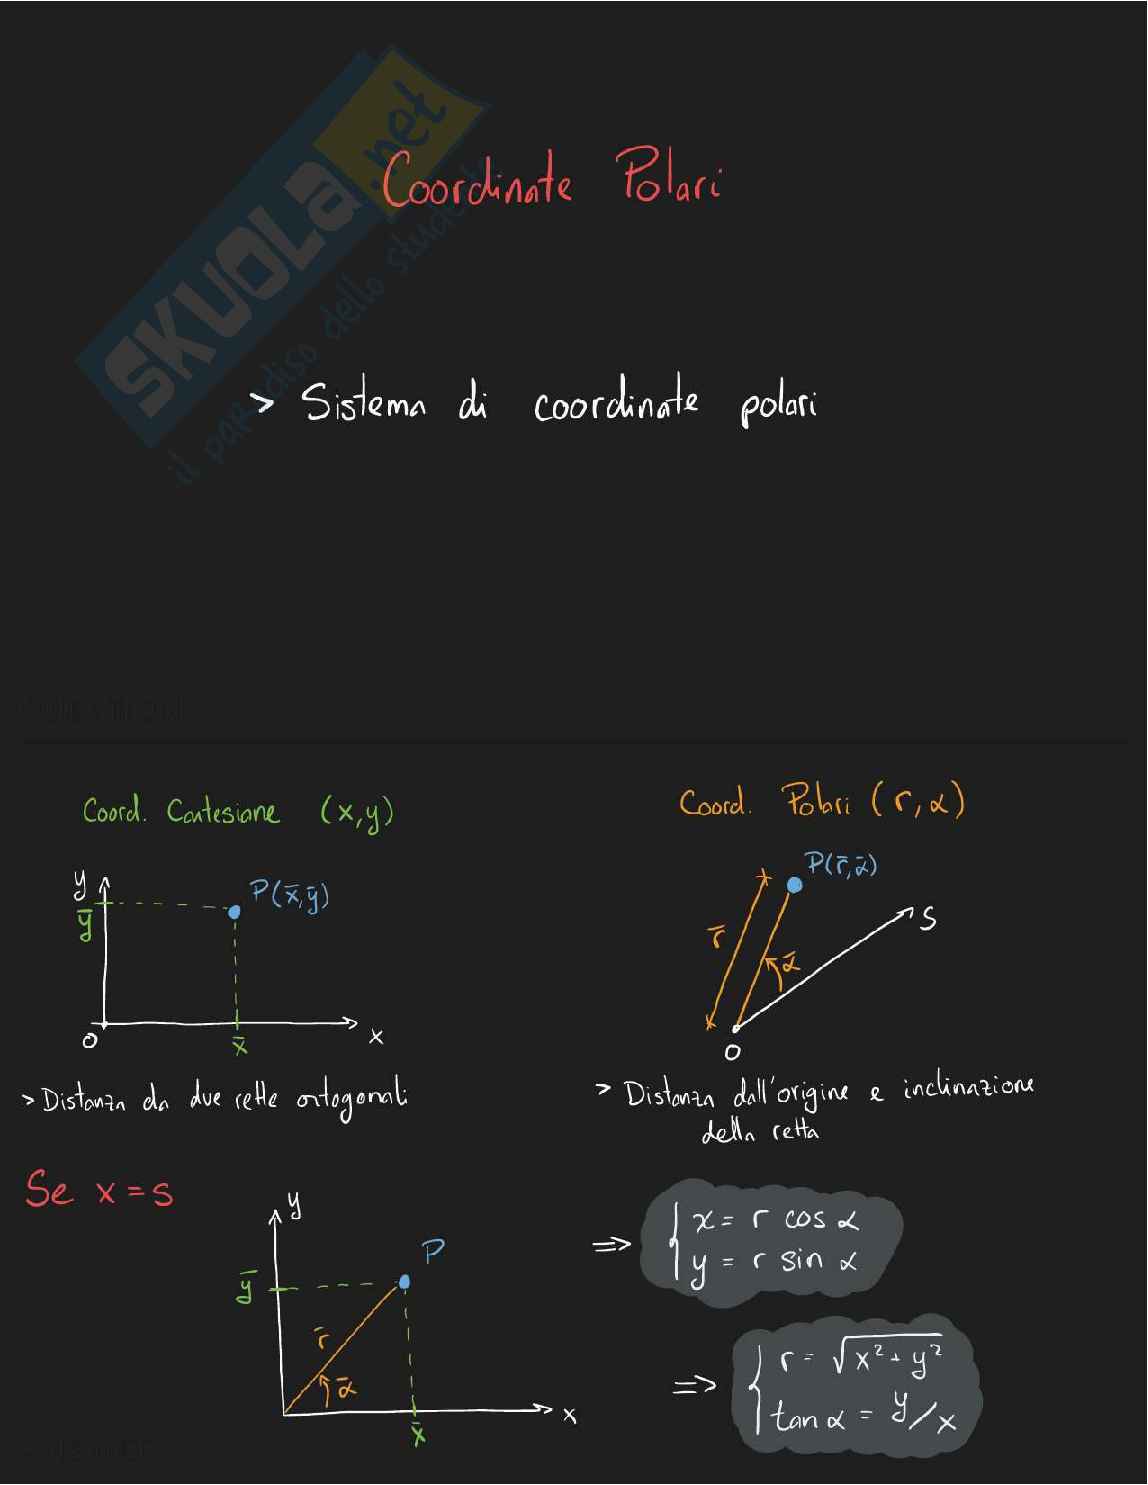 SKUOLA.net
il paradiso dello studente
Coordinate Polari
> Sistema di coordinate polari
Coord. Cartesiane (x,y)
y
ȳ
P(x̄,ȳ)
O
x̄
x
> Distanza da due rette ortogonali
Coord. Polari (r,α)
P(r̄,ᾱ)
r̄
ᾱ
S
O
> Distanza dall'origine e inclinazione
della retta
Se x=s
y
P
ȳ
r̄
ᾱ
x̄
x
=> { x = r cos α
y = r sin α
=> { r = √x²+y²
tan α = y/x